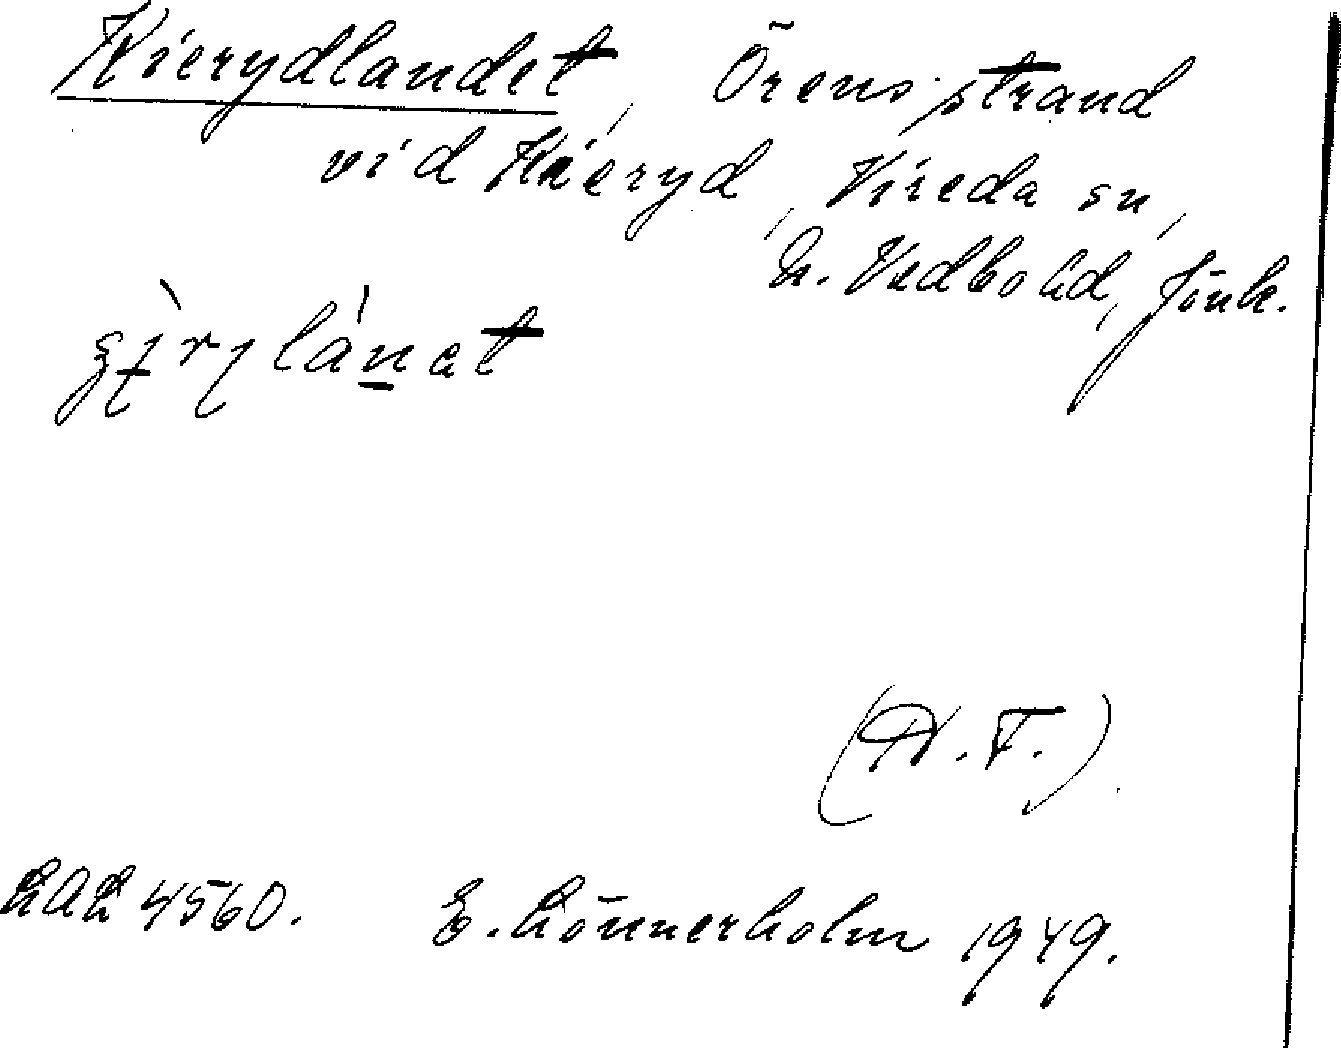 Kierydlandet, Örens strand
vid Kieryd, Vireda sn,
N. Vedbo hd, Jönk.
(N.F.).
LAL 4560. E. Lönnerholm 1949.